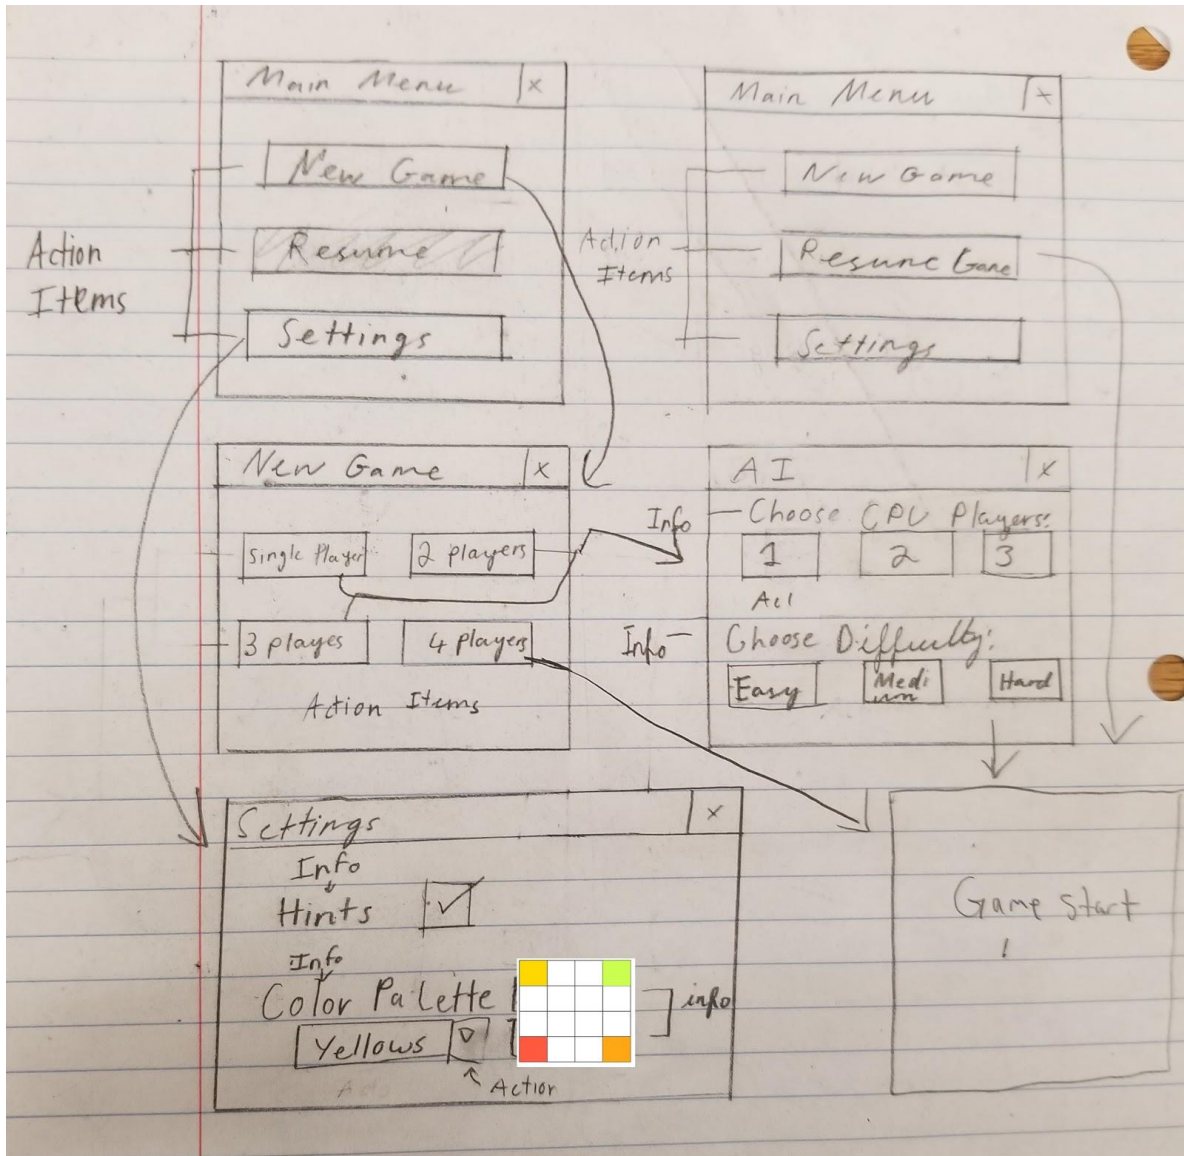 Main Menu x
New Game
Resume
Settings
Action
Items
Main Menu x
New Game
Resume Game
Settings
Action
Items
New Game x
Single Player 2 players
3 playes 4 players
Action Items
AI x
Info Choose CPU Players:
1 2 3
Info Choose Difficulty:
Easy Medi Hard
um
Settings x
Info
Hints
Info
Color Palette
info
Yellows
Action
Game Start